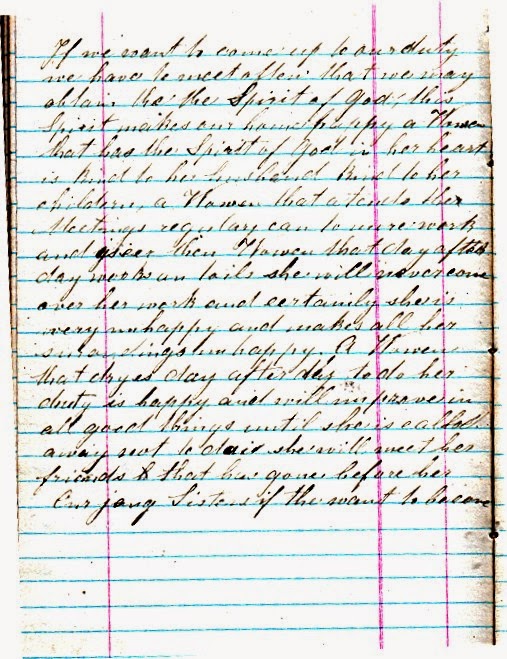 If we want to come up to our duty
we have to meet often that we may
obtain the the Spirit of God, this
Spirit makes our home happy a Women
that has the Spirit of God in her heart
is kind to her husband kind to her
children, a Women that atends Her
Meetings regulary can do more work
and then Women that day after
day works an toils she will never come
over her work and certainly she is
very unhappy and makes all her
suroundings unhappy A Women
that dryes day after day to do her
duty is happy and will improve in
all good things until she is called
away not to she will meet her
friends & that has gone before her
Our yong Sisters if the want to become